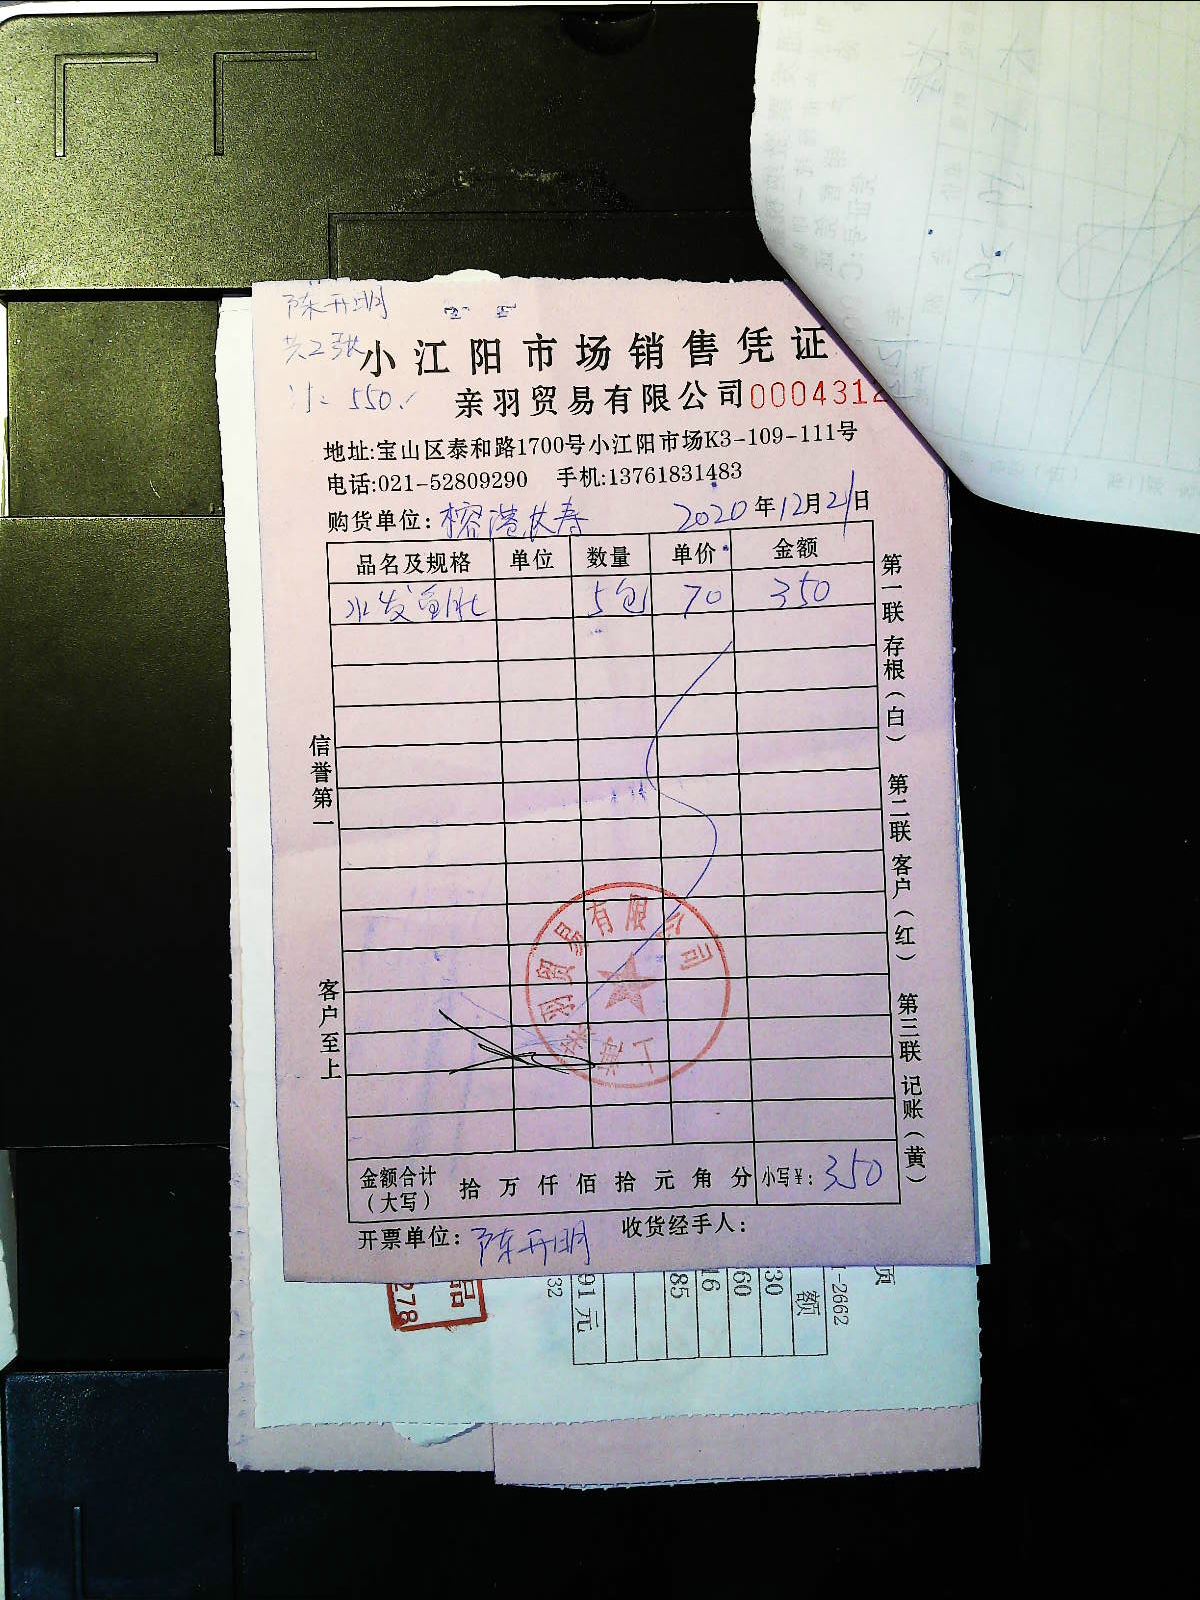 陈开明
共2张
计: 550.
小江阳市场销售凭证
亲羽贸易有限公司 0004312
地址:宝山区泰和路1700号小江阳市场K3-109-111号
电话:021-52809290 手机:13761831483
购货单位: 2020年12月21日
品名及规格 单位 数量 单价 金额
水发鱼肚 5包 70 350
第一联 存根(白) 第二联 客户(红) 第三联 记账(黄)
信誉第一
客户至上
上海亲羽贸易有限公司
金额合计(大写) 拾 万 仟 佰 拾 元 角 分 小写¥: 350
开票单位: 陈开明 收货经手人:
品
278
32
91元
85
16
60
30
额
1-2662
页